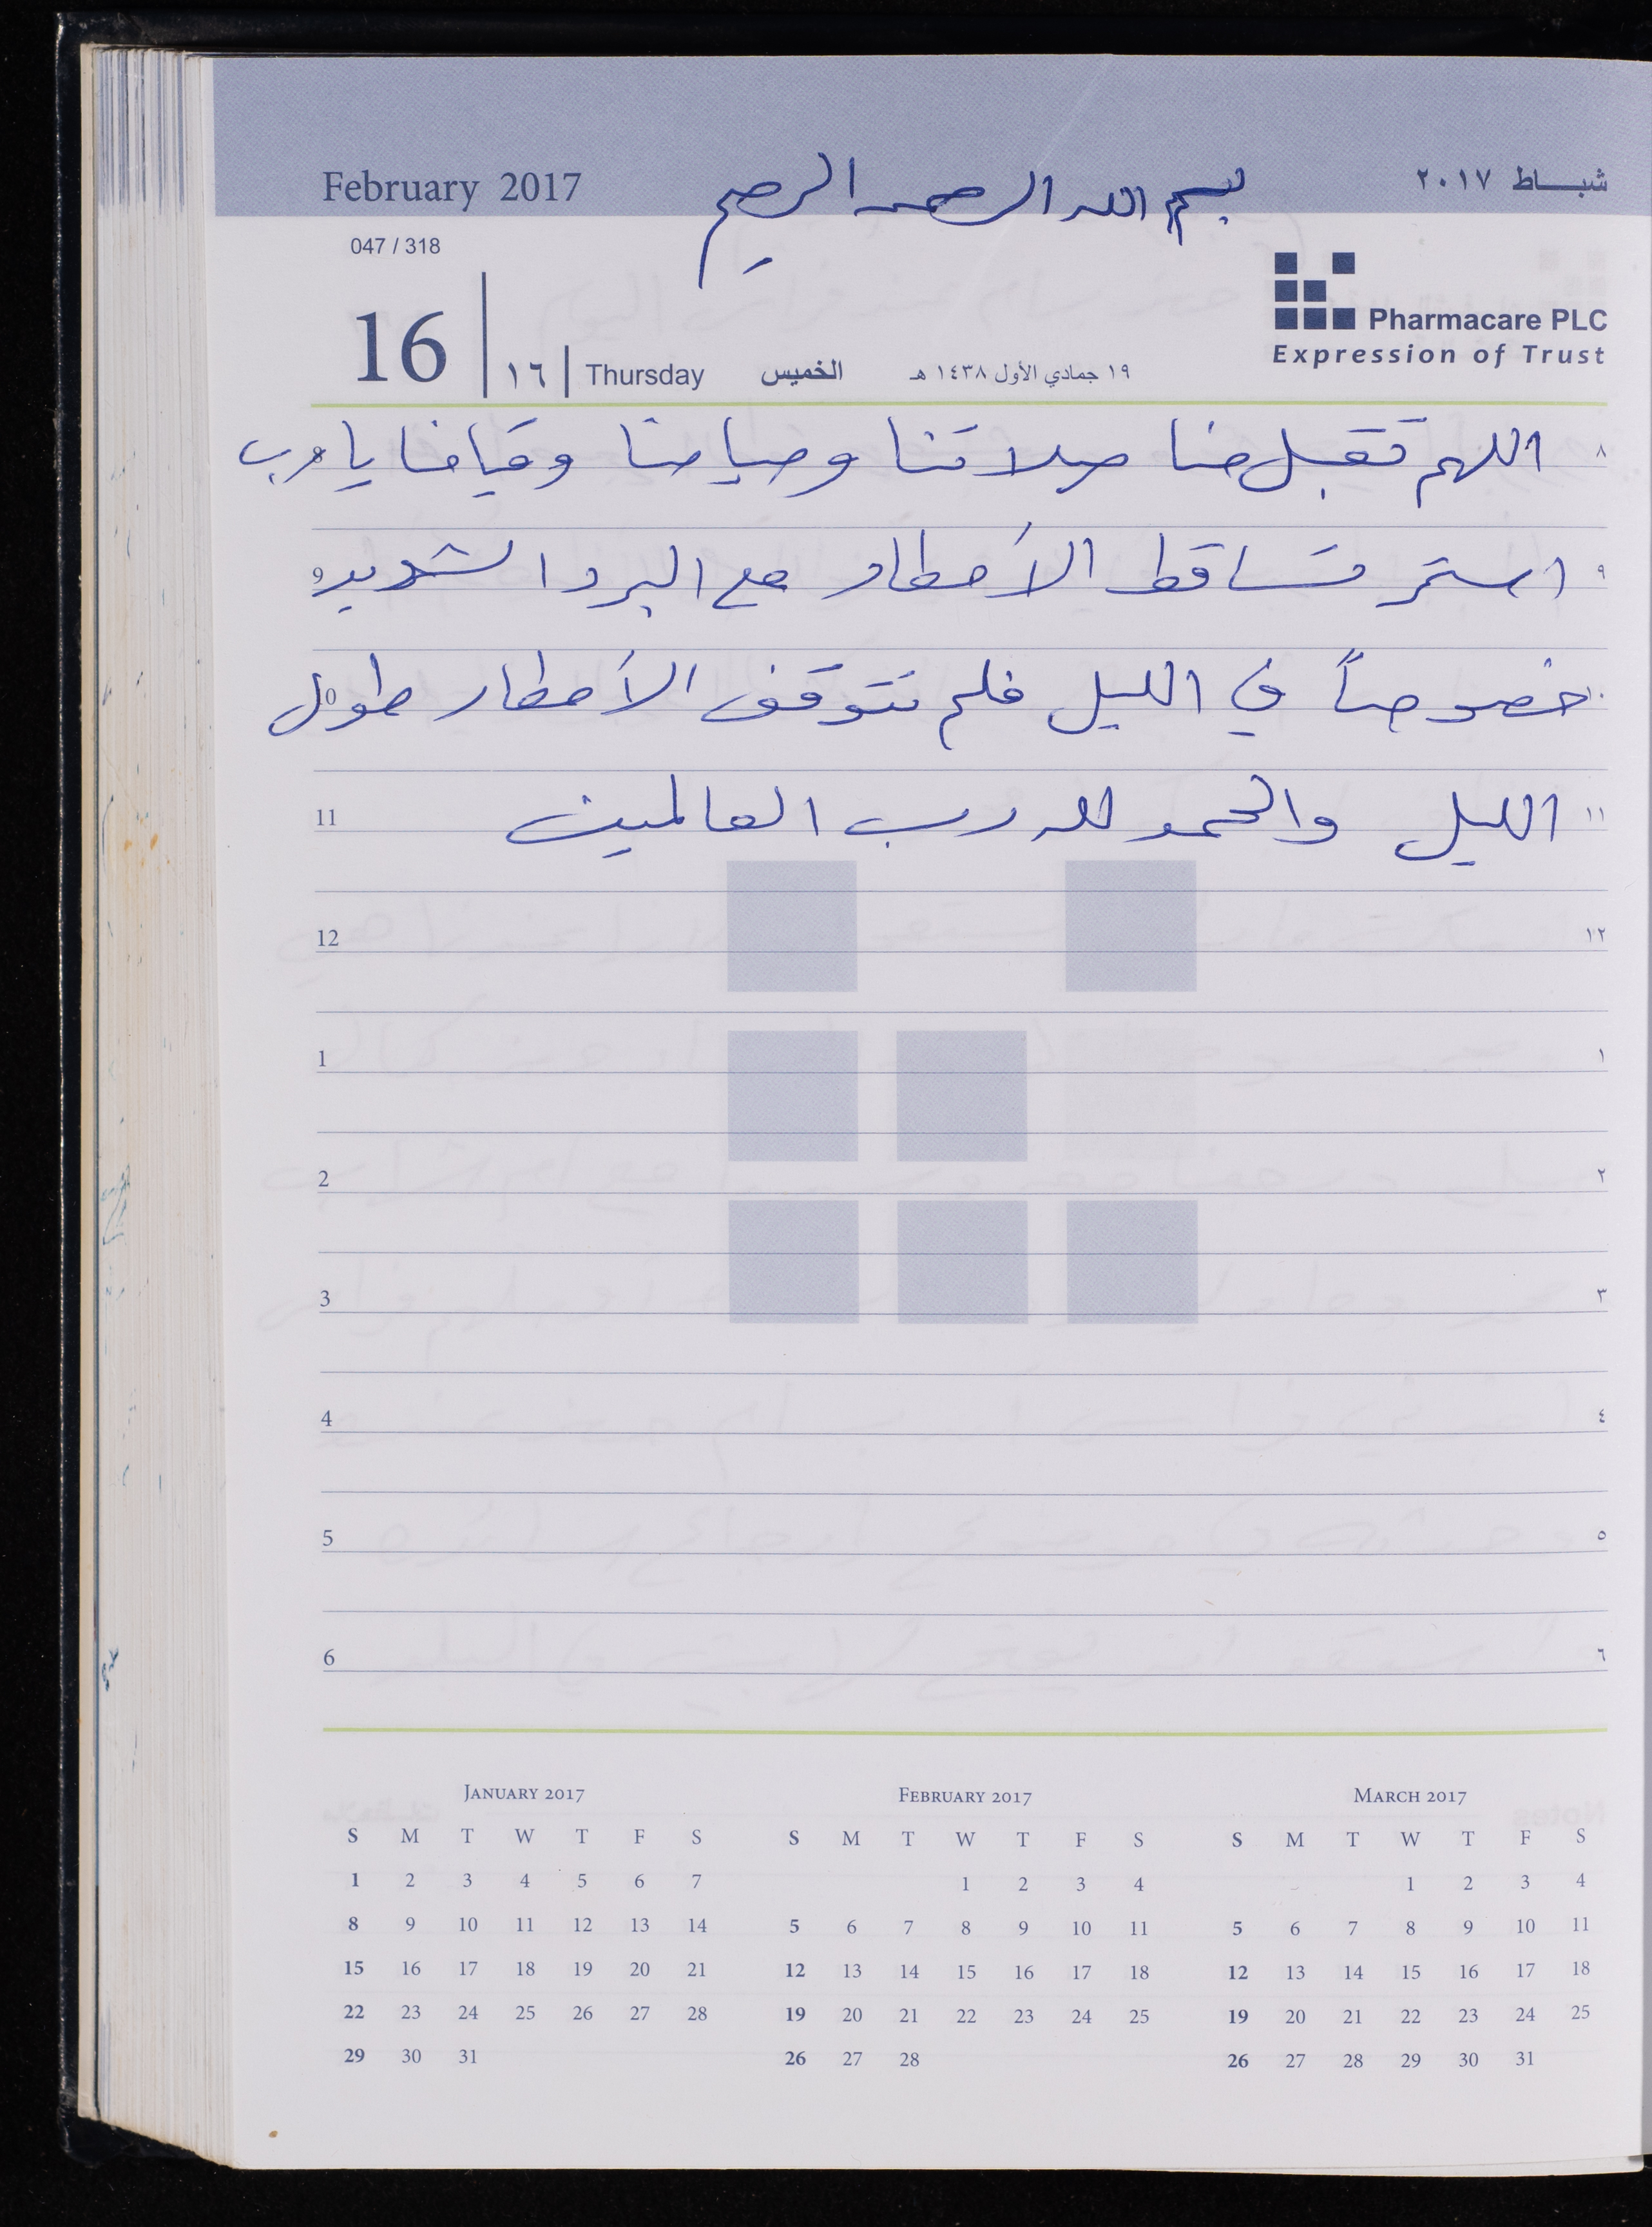 February 2017
بسم الله الرحمن الرحيم
شبـــاط ٢٠١٧
047 / 318
16
١٦
Thursday
الخميس
١٩ جمادي الأول ١٤٣٨ هـ
Pharmacare PLC
Expression of Trust
٨ اللهم تقبل منا صلاتنا وصيامنا وقيامنا يا رب
9 ٩ استمر تساقط الأمطار مع البرد الشديد
10 ١٠ خصوصاً في الليل فلم تتوقف الأمطار طول
11 ١١ الليل والحمد لله رب العالمين
12 ١٢
1 ١
2 ٢
3 ٣
4 ٤
5 ٥
6 ٦
January 2017
S M T W T F S
1 2 3 4 5 6 7
8 9 10 11 12 13 14
15 16 17 18 19 20 21
22 23 24 25 26 27 28
29 30 31
February 2017
S M T W T F S
1 2 3 4
5 6 7 8 9 10 11
12 13 14 15 16 17 18
19 20 21 22 23 24 25
26 27 28
March 2017
S M T W T F S
1 2 3 4
5 6 7 8 9 10 11
12 13 14 15 16 17 18
19 20 21 22 23 24 25
26 27 28 29 30 31